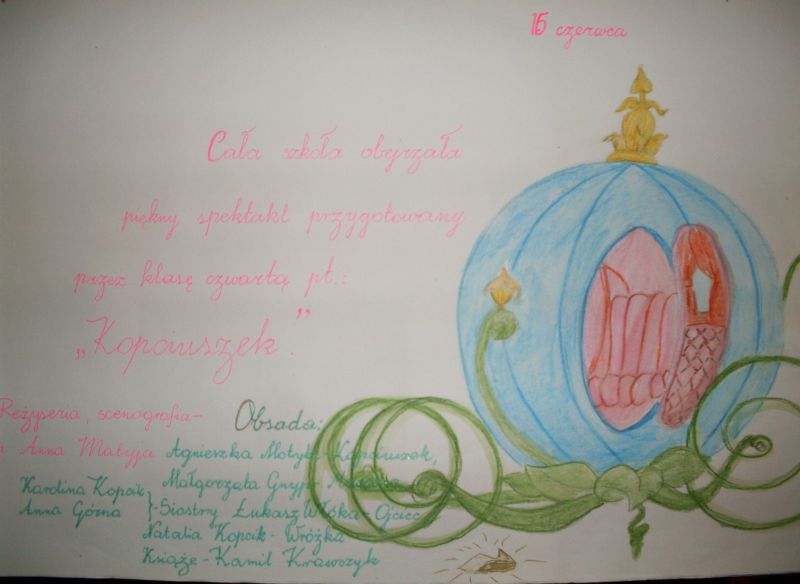 15 czerwca
Cała szkoła obejrzała
piękny spektakl przygotowany
przez klasę czwartą pt.:
„Kopciuszek."
Reżyseria, scenografia-
Anna Matyja
Obsada:
Agnieszka Motyl-Kopciuszek,
Małgorzata
Karolina Kopcik
Anna Górna }-Siostry Łukasz Wośka-Ojciec
Natalia Kopcik-Wróżka
Książę-Kamil Krawczyk